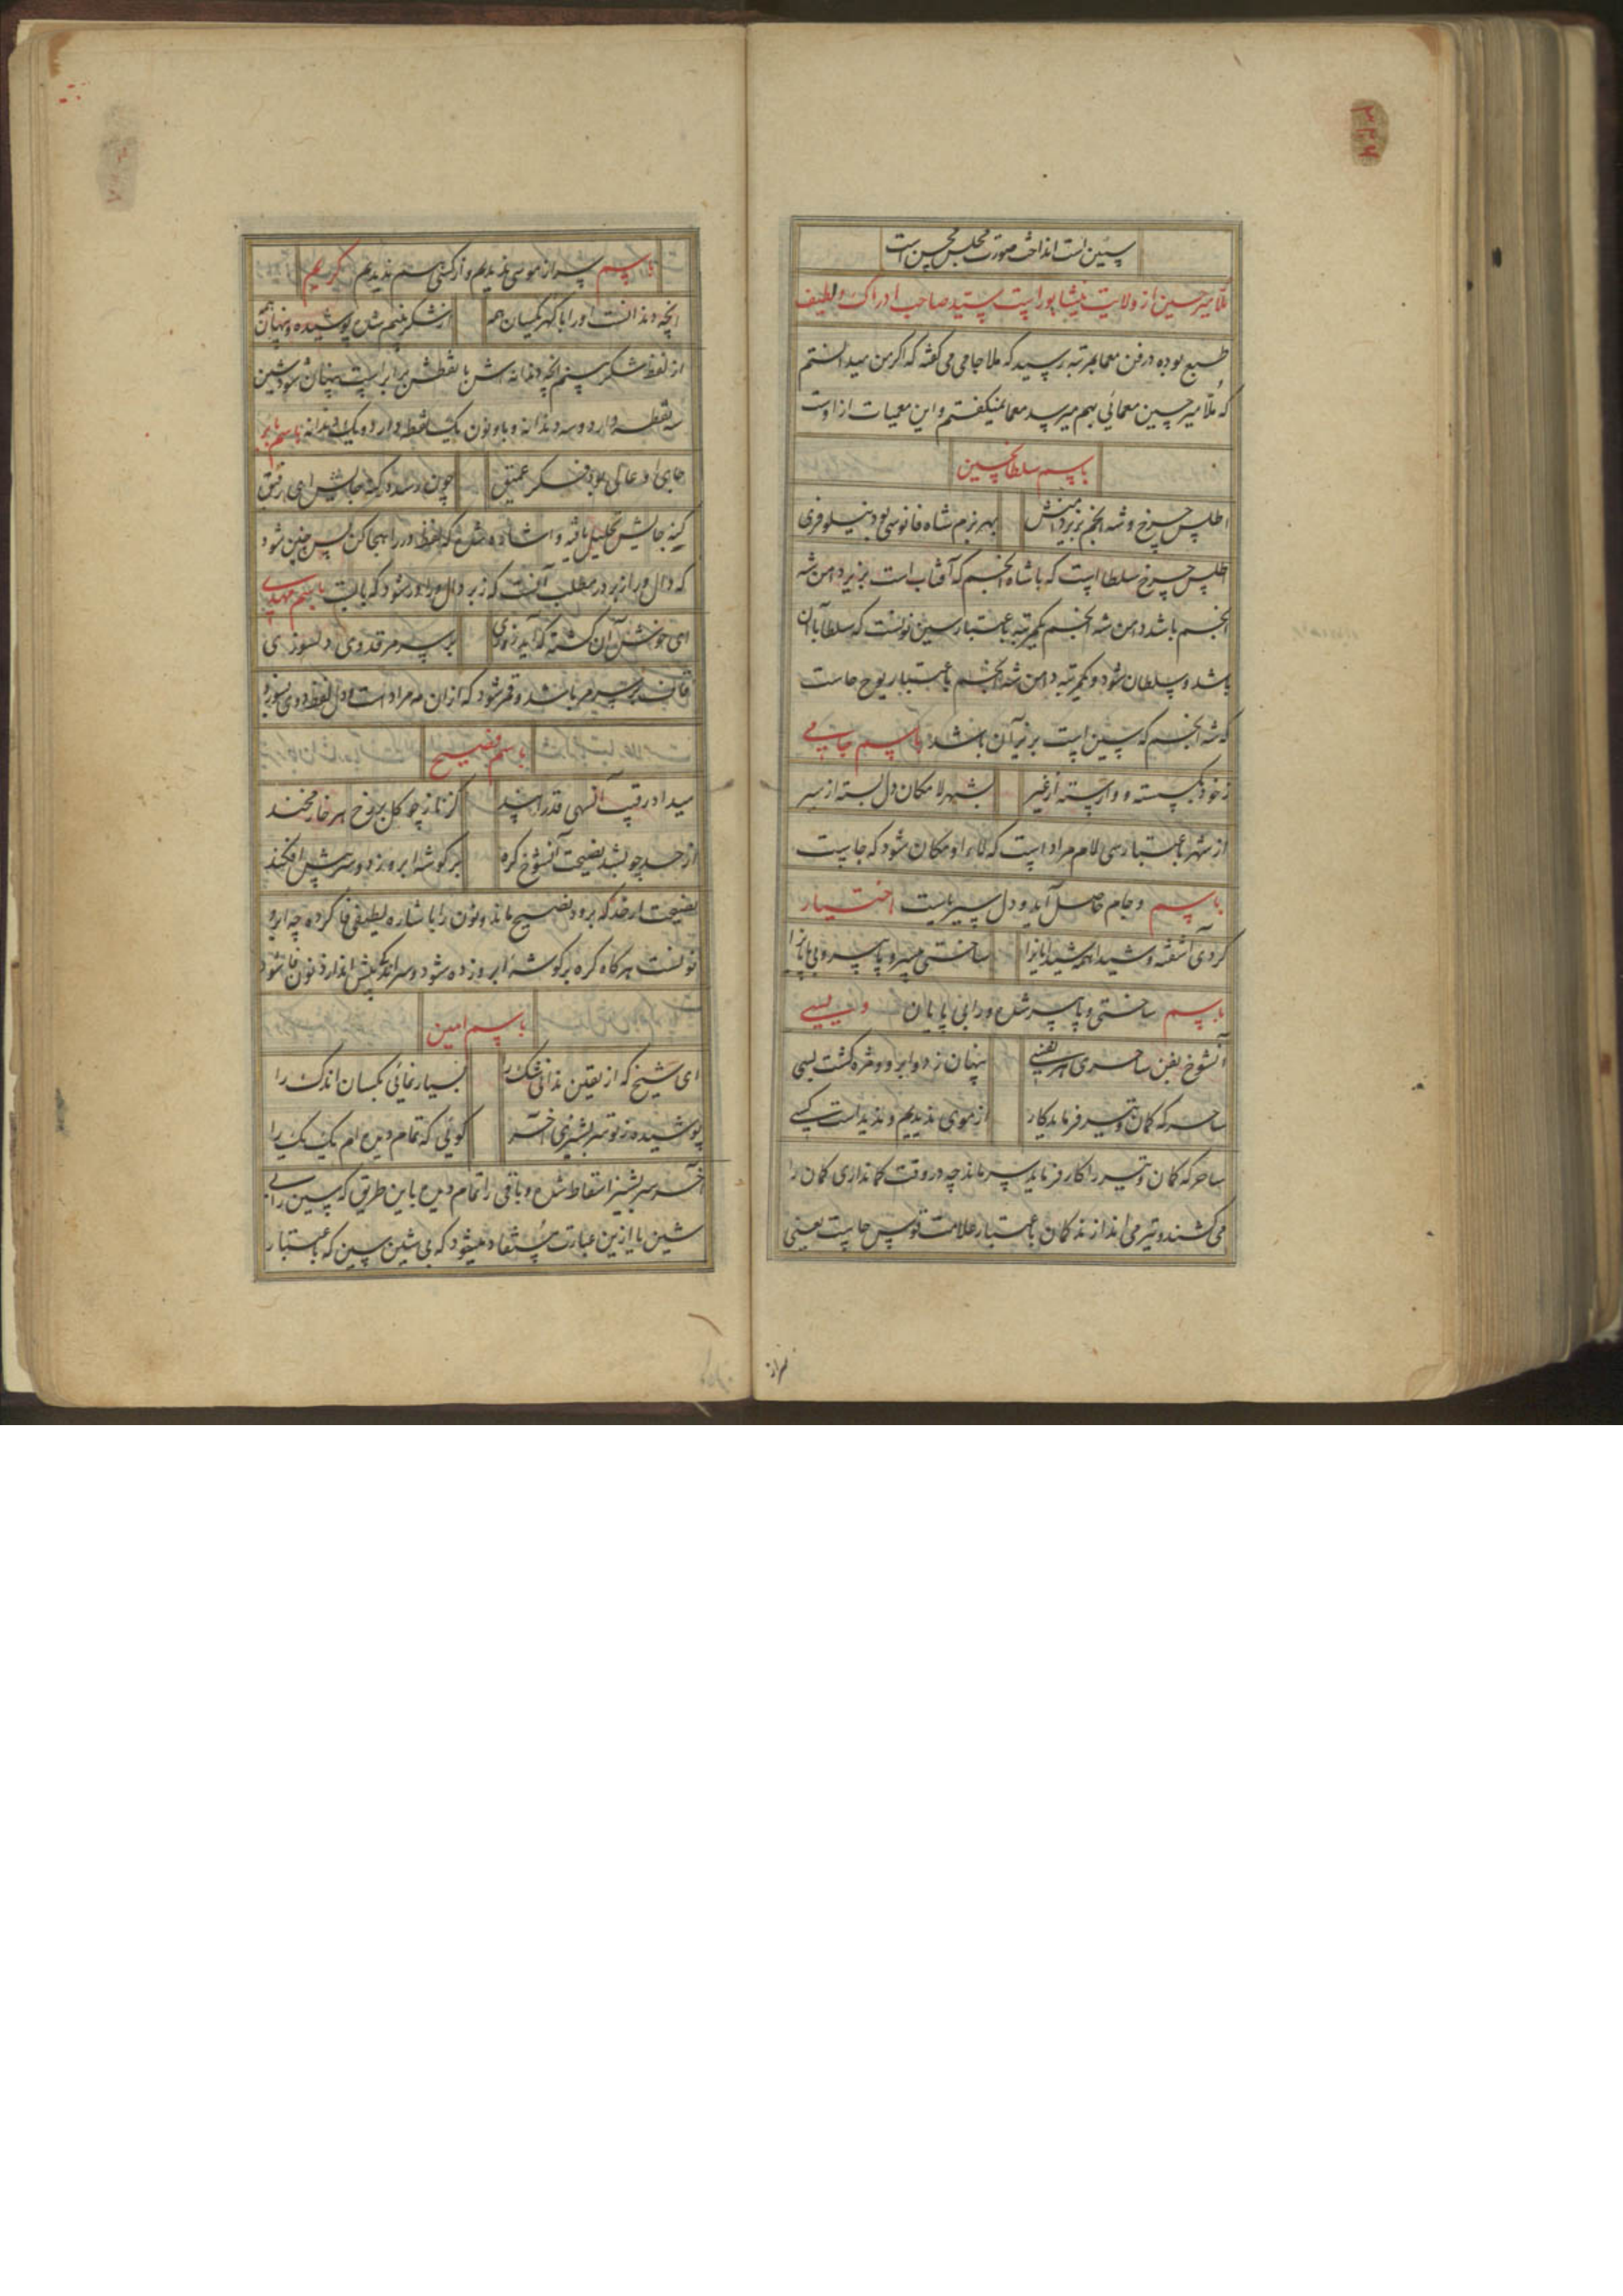 ۳۳۴
سین است انداخت صورت مجلس محسین است
ملا میرحسین از ولایت نیشابور است سید صاحب ادراک و لطیف
طبع بوده در فن معما بمرتبه رسید که ملا جامی می گفته که اگر من میدانستم
که ملا میر حسین معمائی بهم میرسد معما نمیگفتم و این معمیات از اوست
باسم سلطانحسین
اطلس چرخ و شه انجم بزیر دامنش
بهر بزم شاه فانوسی بود نیلوفری
اطلس چرخ سلطا است که با شاه انجم که آفتاب است بزیر دامن شه
انجم باشد دامن شه انجم یکمرتبه باعتبار سین نونست که سلطا با آن
باشد و سلطان شود و یکمرتبه دامن شه انجم باعتبار یوح حاست
که شه انجم که سین است بزیر آن باشد باسم جامی
زخود بگسسته و وارسته از غیر
بشهر لامکان دل بسته از سیر
از شهر باعتبار سی لام مراد است که لام او مکان شود که جا است
و جام حاصل آید و دل سیر یاست باسم اختیار
کردی آشفته و شیدا همه شیدایانرا
ساختی میسر و پا سر و بی پایانرا
باسم ساختی و پا سر شد و را بی پایان ویسی
آنشوخ بفن ساحری هر نفسی
پنهان ز دو ابرو و مژه گشت بسی
ساحر که کمان و تیر فرماید کار
از موی ندیدیم و ندیدست کسی
ساحر که کمان و تیر را کار فرماید سر ماند چه در وقت کمانداری کمان را
می کشند و تیر می اندازند کمان باعتبار علامت قوس حاست یعنی
باسم سر از موسی ندیدیم و از کسی هم ندیدیم کریم
آنچه دندانست او را با گهر یکسان همه
از شکر بنیم شده پوشیده و پنهان همه
از لفظ شکر بینم آنچه دندانه اش با نقطش برابر است پنهان شود شین
سه نقطه دارد و سه دندانه و با و نون یک نقطه دارد و یک دندانه باسم بابر
جای او عالی بود فکر عمیق
چون رسد در کنه جایش ای رفیق
کنه جایش تحلیل یافته و اشاره شد که لفظ در را هجا کن پس چنین شود
که دال و را زبر در مطلب آنست که زبر دال و را در شود که باست باسم مهدی
ای خوش آن کشته که آید زخوی
بر سر مرقد وی دلسوزی
باسم فصیح
میداد رقیب آنسهی قد را پند
کز ناز چو گل بر رخ هر خار مخند
از حد چو بشد نصیحت آنشوخ گره
بر گوشه ابرو زد و سر پیش افکند
نصیحت از حد که برود نصیح ماند و نون را باشاره لطیفی فا کرده چه ابرو
نونست هرگاه گره بر گوشه ابرو زده شود و سر اندک پیش اندازد نون فا شود
باسم امین
ای شیخ که از یقین ندانی شک را
بسیار نمائی بکسان اندک را
پوشیده ز تو سر بشیزی آخر
گوئی که تمام دیده ام یک یک را
آخر سر بشیز اسقاط شد و باقی را تمام دیده باین طریق که سین را بی
شین یا ازین عبارت مستفاد میشود که بی شین سین که باعتبار